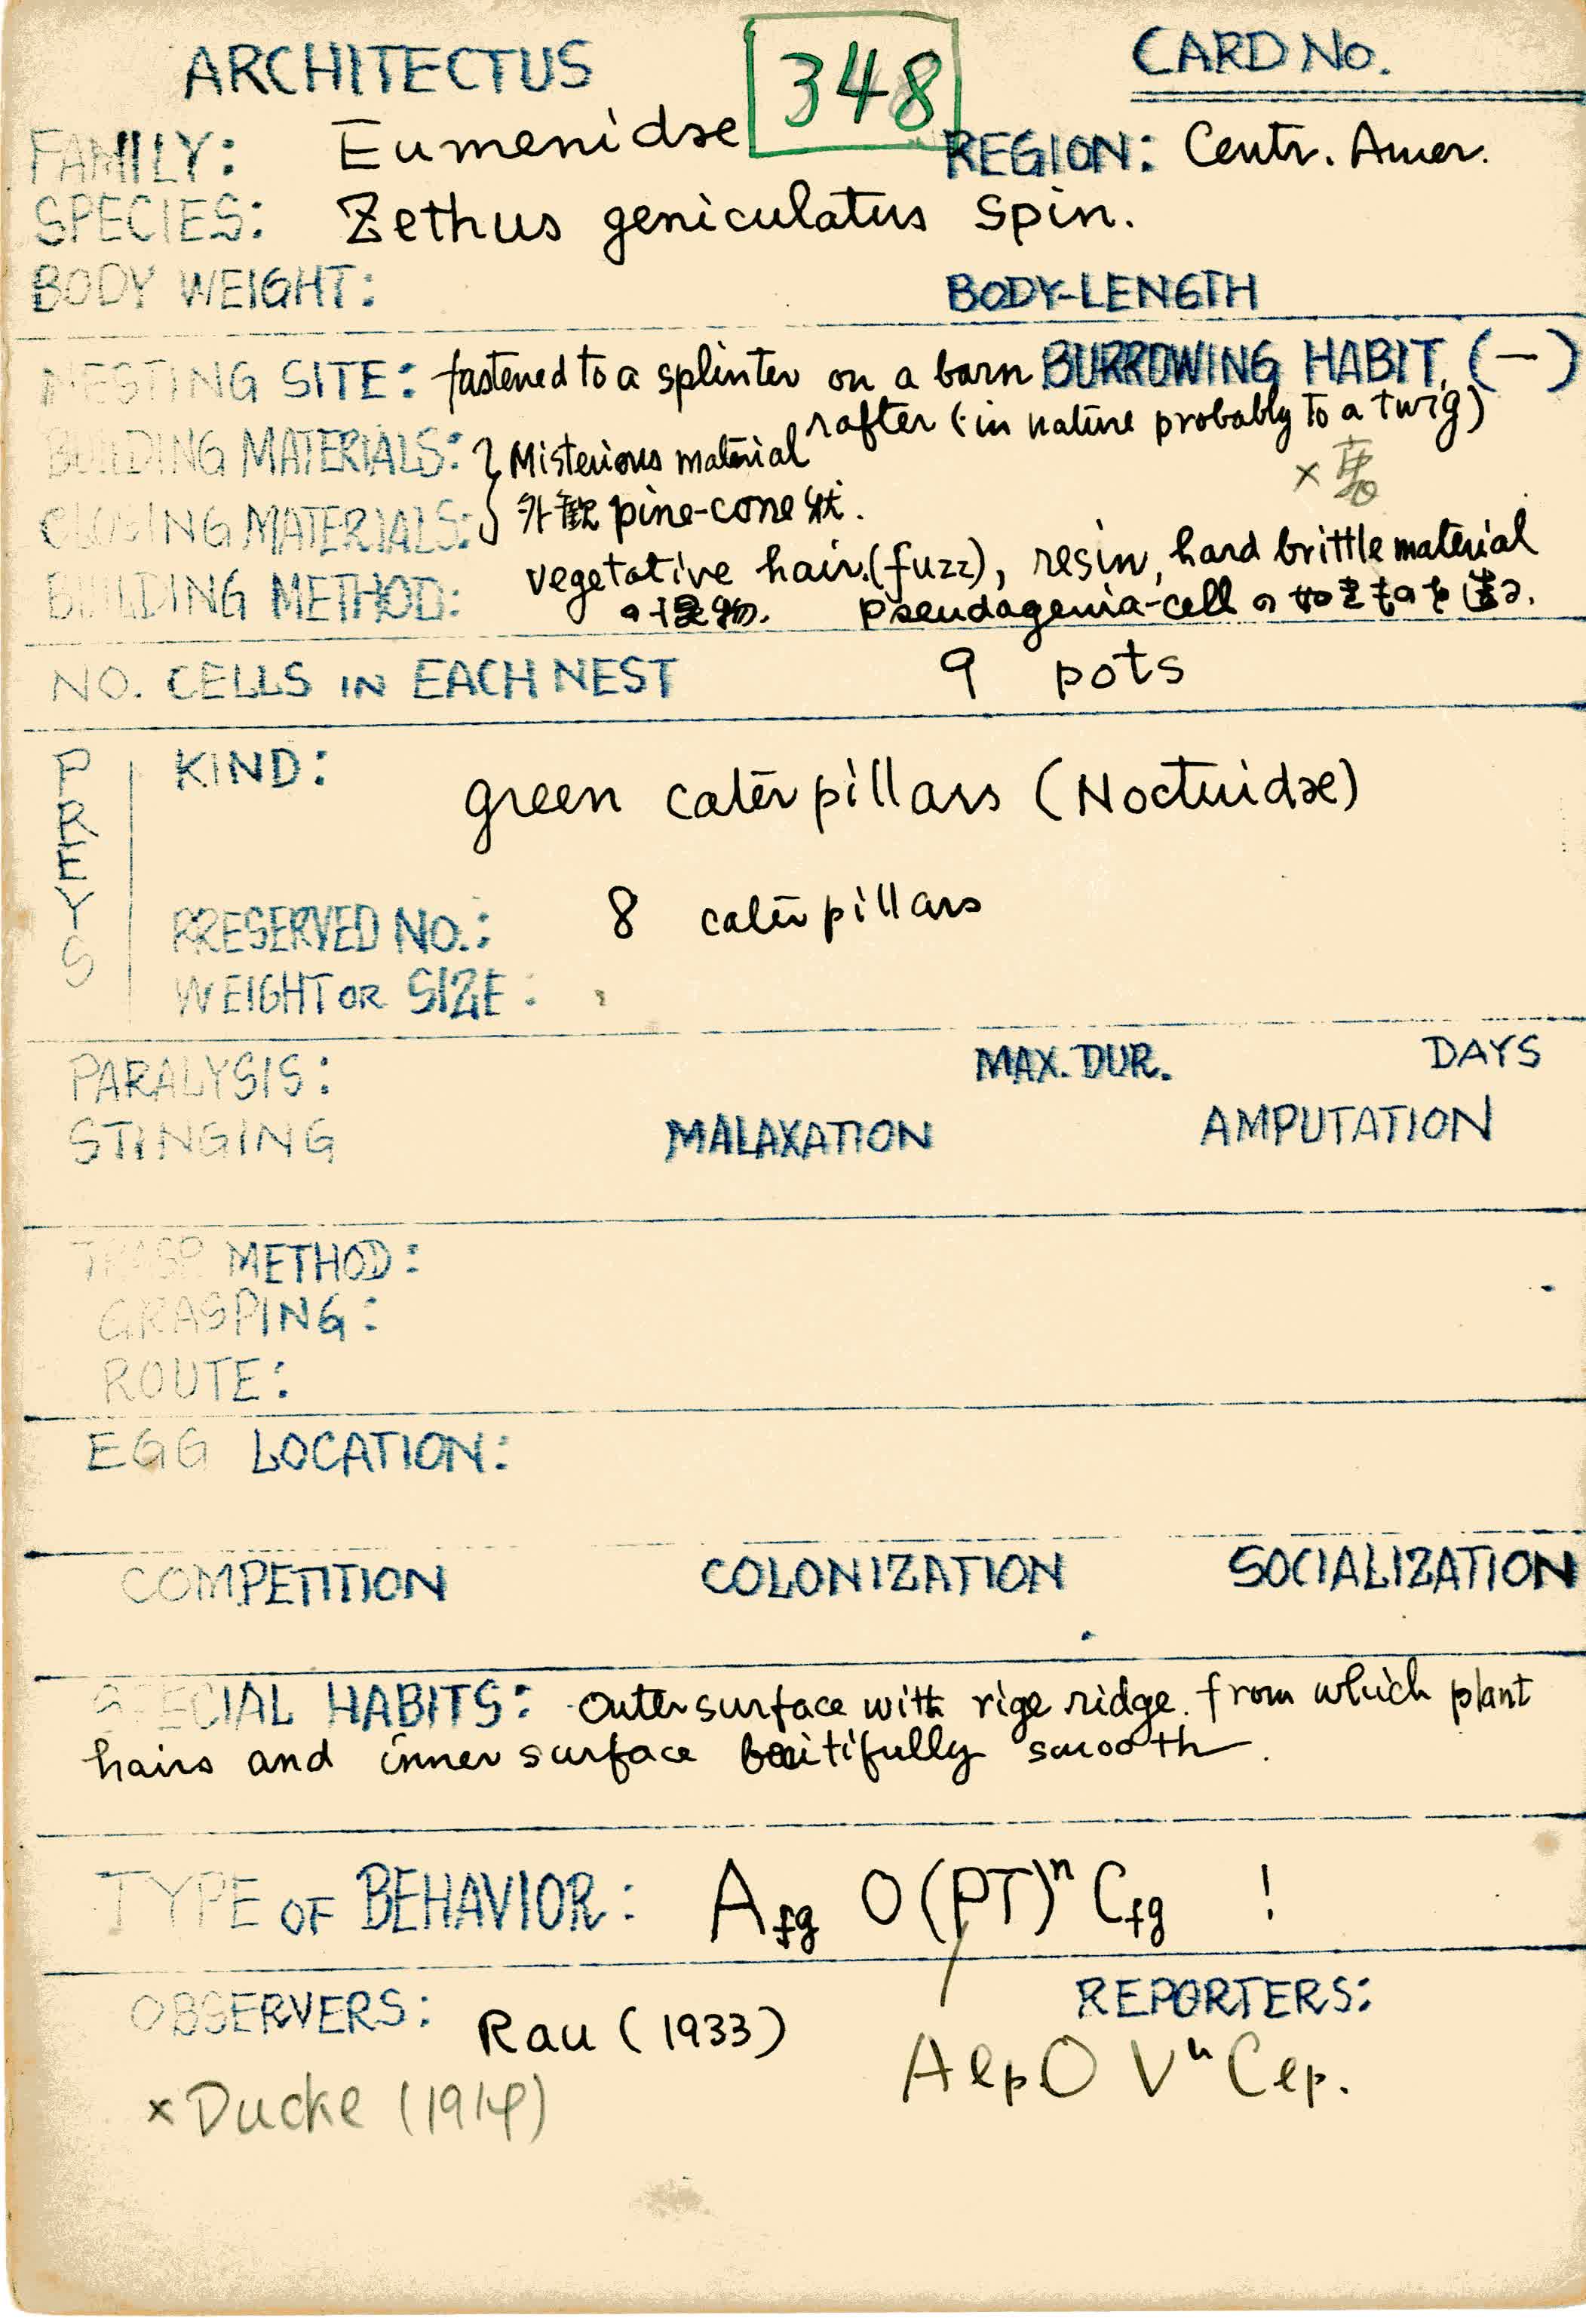 ARCHITECTUS 348 CARD NO.
FAMILY: Eumenidae REGION: Centr. Amer.
SPECIES: Zethus geniculatus Spin.
BODY WEIGHT: BODY-LENGTH
NESTING SITE: fastened to a splinter on a barn BURROWING HABIT, (-)
rafter (in nature probably to a twig)
BUILDING MATERIALS: Misterious material
CLOSING MATERIALS: 外観 pine-cone状.
vegetative hair (fuzz), resin, hard brittle material
BUILDING METHOD: の混物. Pseudagenia-cellの如きものを造る.
NO. CELLS IN EACH NEST 9 pots
PREYS
KIND: green caterpillars (Noctuidae)
PRESERVED NO.: 8 caterpillars
WEIGHT OR SIZE:
PARALYSIS: MAX. DUR. DAYS
STINGING MALAXATION AMPUTATION
TRASP METHOD:
GRASPING:
ROUTE:
EGG LOCATION:
COMPETITION COLONIZATION SOCIALIZATION
SPECIAL HABITS: outer surface with rige ridge. from which plant
hairs and inner surface beautifully smooth.
TYPE OF BEHAVIOR: Afg O(PT)ⁿ Cfg !
OBSERVERS: Rau (1933) REPORTERS:
AepO Vⁿ Cep.
× Ducke (1914)